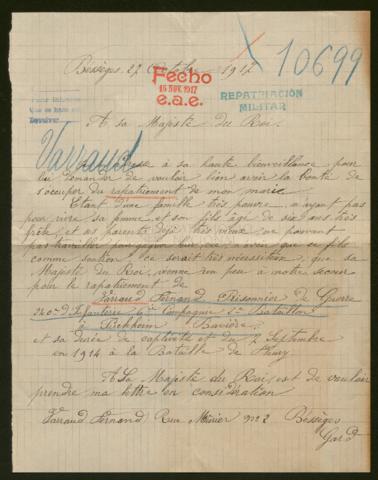 Bessèges, 27 Octobre 1917
10699
Fecho
15 NOV. 1917
e.a.e.
REPATRIACIÓN
MILITAR
A sa Majesté du Roi.
Varraud
à sa haute bienveillance, pour
lui demander de vouloir bien avoir la bonté de
s'occuper du repatriement de mon marie.
Etant d'une famille très pauvre, n'ayant pas
pour vivre sa femme et son fils âgé de six ans très
et ses parents déjà très vieux ne pouvant
pas travailler
comme soutien ce serait très nécessiteux, que sa
Majesté du Roi, vienne un peu à notre secour
pour le repatriement de
Varraud Fernand Prisonnier de Guerre
Infanterie 6me Compagnie 2me Bataillon
à Bavière
et sa durée de captivité et du 7 Septembre
en 1914 à la Bataille de Fleury
A Sa Majesté du Roi, est de vouloir
prendre ma lettre en considération
Varraud Fernand Rue Mûrier no 2 Bessèges
Gard